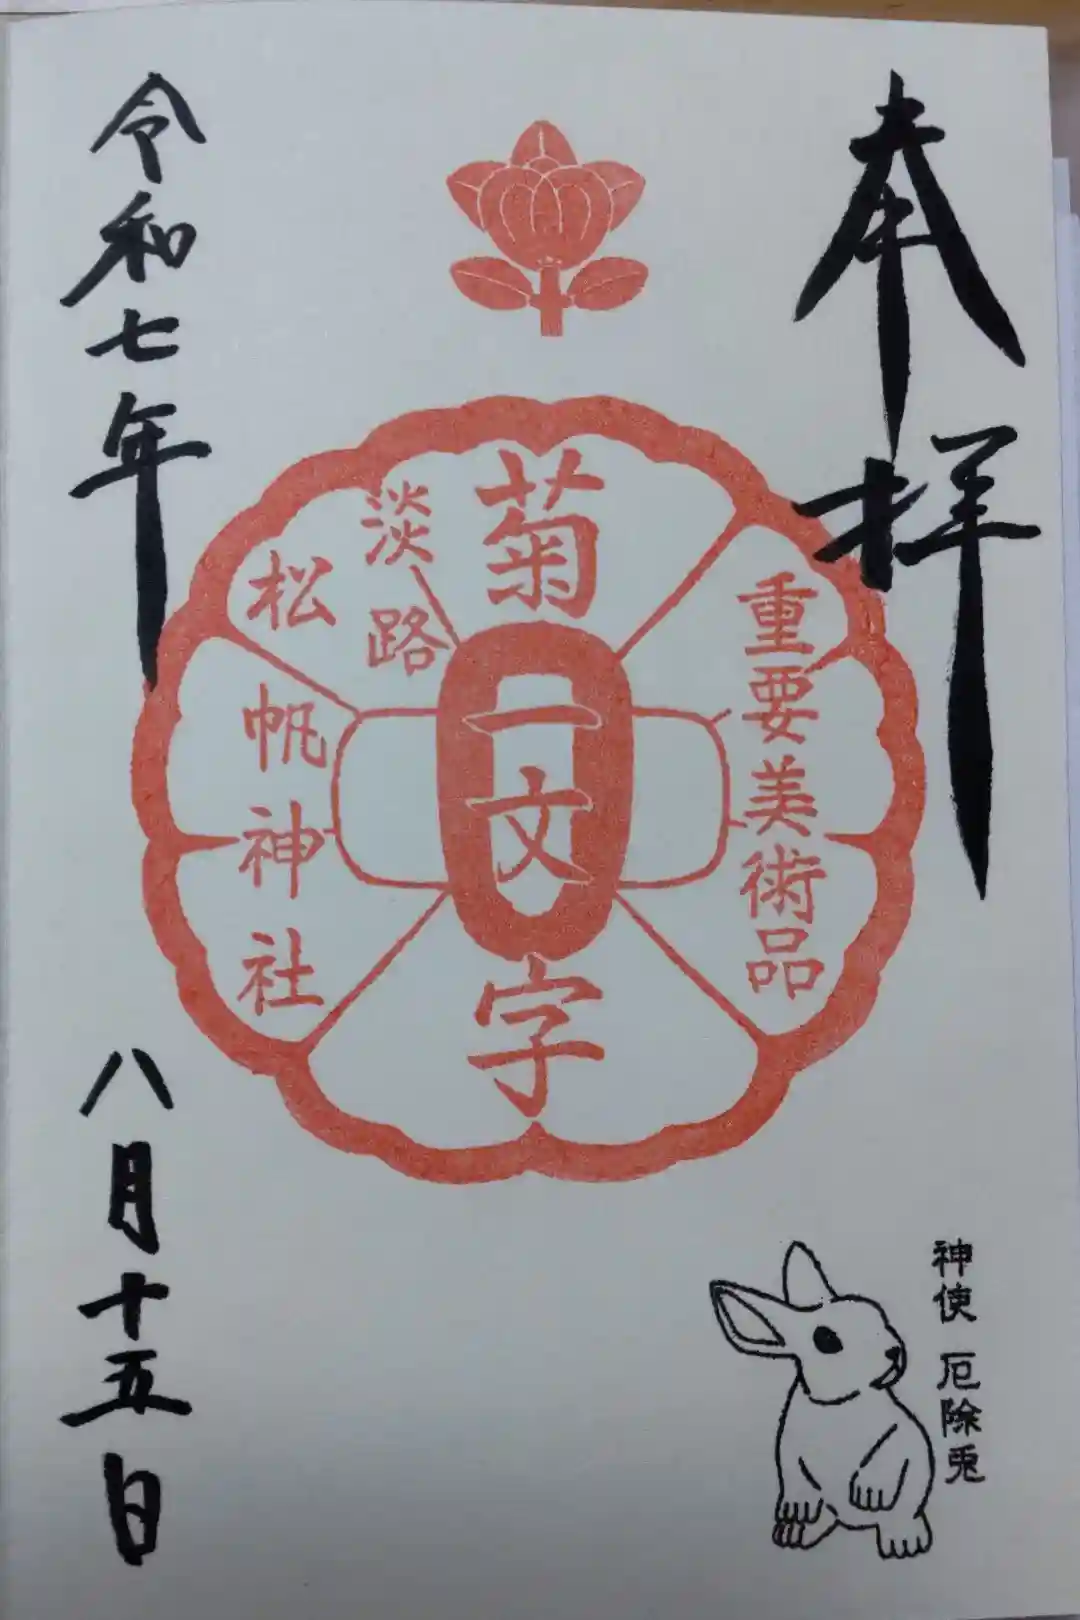 奉拝
重要美術品
菊一文字
淡路
松帆神社
令和七年
八月十五日
神使 厄除兎